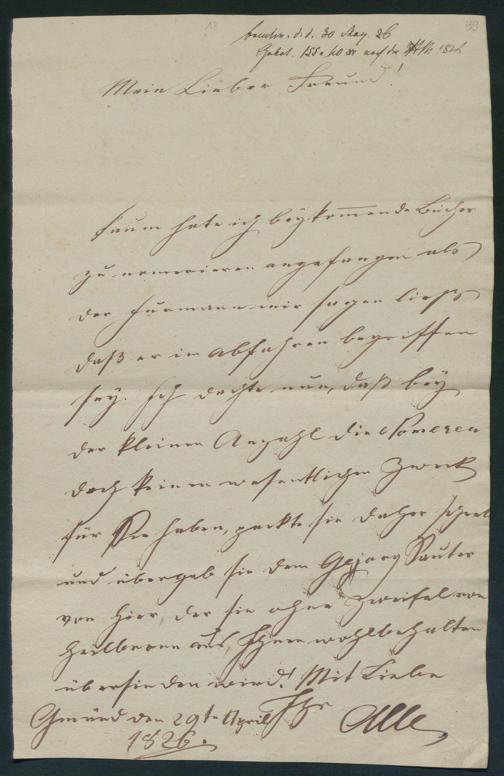 33
beantw. d. d. 30 May 26
Mein Lieber Freund!
Kaum hate ich beykommende Bücher
zu numerieren angefangen als
der Furmann mir sagen ließ
daß er im Abfahren begriffen
sey. Ich dachte nun, daß bey
der kleinen Anzahl die Nomeren
doch keinen wesentlichen Zweck
für Sie haben, packte sie daher schnell
und übergab sie dem Sauter
von hier, der sie ohne Zweifel von
Heilbronn aus, Ihnen wohlbehalten
übersenden wird! Mit Liebe
Gmünd den 29t. April Ihr
1826. Alle